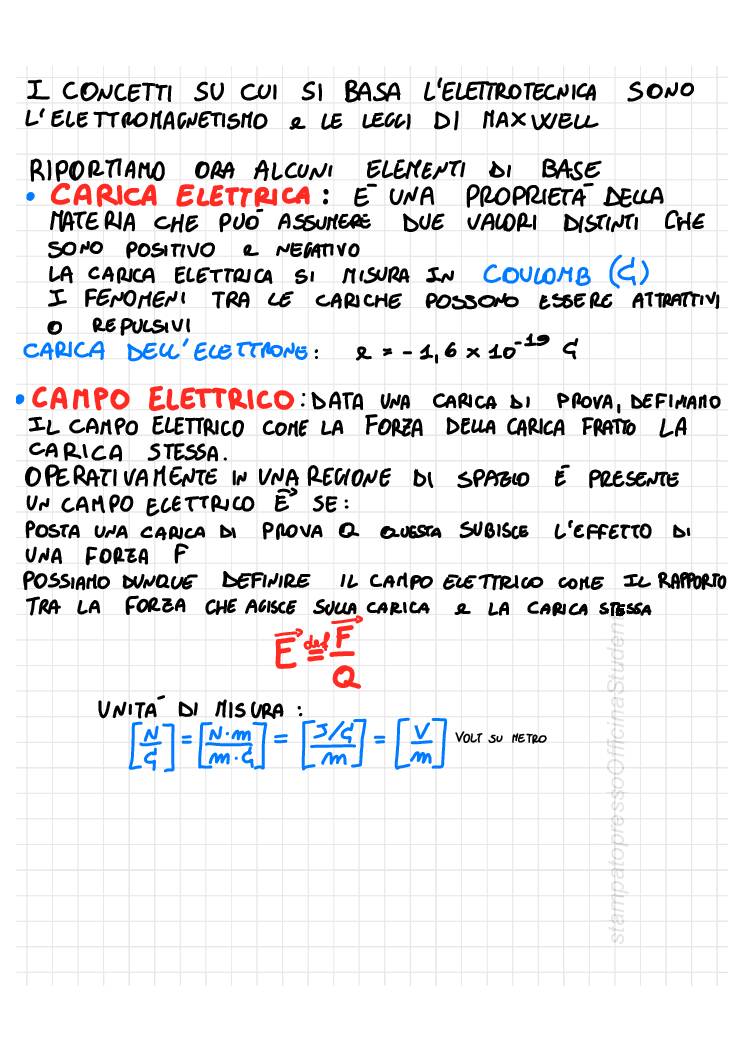 I CONCETTI SU CUI SI BASA L'ELETTROTECNICA SONO
L'ELETTROMAGNETISMO e LE LEGGI DI MAXWELL
RIPORTIAMO ORA ALCUNI ELEMENTI DI BASE
• CARICA ELETTRICA: È UNA PROPRIETÀ DELLA
MATERIA CHE PUÒ ASSUMERE DUE VALORI DISTINTI CHE
SONO POSITIVO e NEGATIVO
LA CARICA ELETTRICA SI MISURA IN COULOMB (C)
I FENOMENI TRA LE CARICHE POSSONO ESSERE ATTRATTIVI
O REPULSIVI
CARICA DELL'ELETTRONE: e = -1,6 x 10^-19 C
• CAMPO ELETTRICO: DATA UNA CARICA DI PROVA, DEFINIAMO
IL CAMPO ELETTRICO COME LA FORZA DELLA CARICA FRATTO LA
CARICA STESSA.
OPERATIVAMENTE IN UNA REGIONE DI SPAZIO È PRESENTE
UN CAMPO ELETTRICO E⃗ SE:
POSTA UNA CARICA DI PROVA Q QUESTA SUBISCE L'EFFETTO DI
UNA FORZA F
POSSIAMO DUNQUE DEFINIRE IL CAMPO ELETTRICO COME IL RAPPORTO
TRA LA FORZA CHE AGISCE SULLA CARICA e LA CARICA STESSA
E⃗ def= F⃗/Q
UNITÀ DI MISURA:
[N/C] = [N·m/m·C] = [J/C/m] = [V/m] VOLT SU METRO
stampatopressoOfficinaStudenti